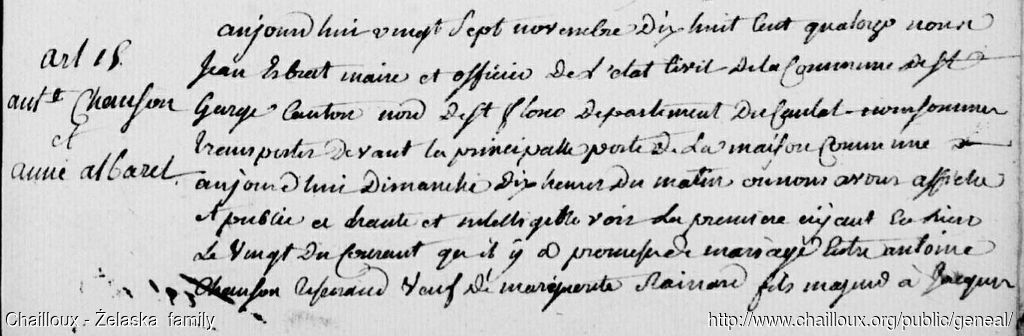 art 15.
antne Chanson
et
anne albaret.
aujourdhui vingt Sept novembre dix huit Cent quatorze nous
Jean Erbert maire et officier De L'etat Civil De la Commune de St
George Canton nord De St flour Departement Du Cantal nous sommes
transportés Devant la principalle porte De La maison Commune
aujourdhui Dimanche Dix heures Du matin ou nous avons affiché
et publié a haute et intelligible voix La premiere
Le vingt Du Courant qu'il y a promesse De mariage Entre antoine
Chanson Veuf De marguerite Rainard fils majeur a Jacques
Chailloux - Żelaska family
http://www.chailloux.org/public/geneal/